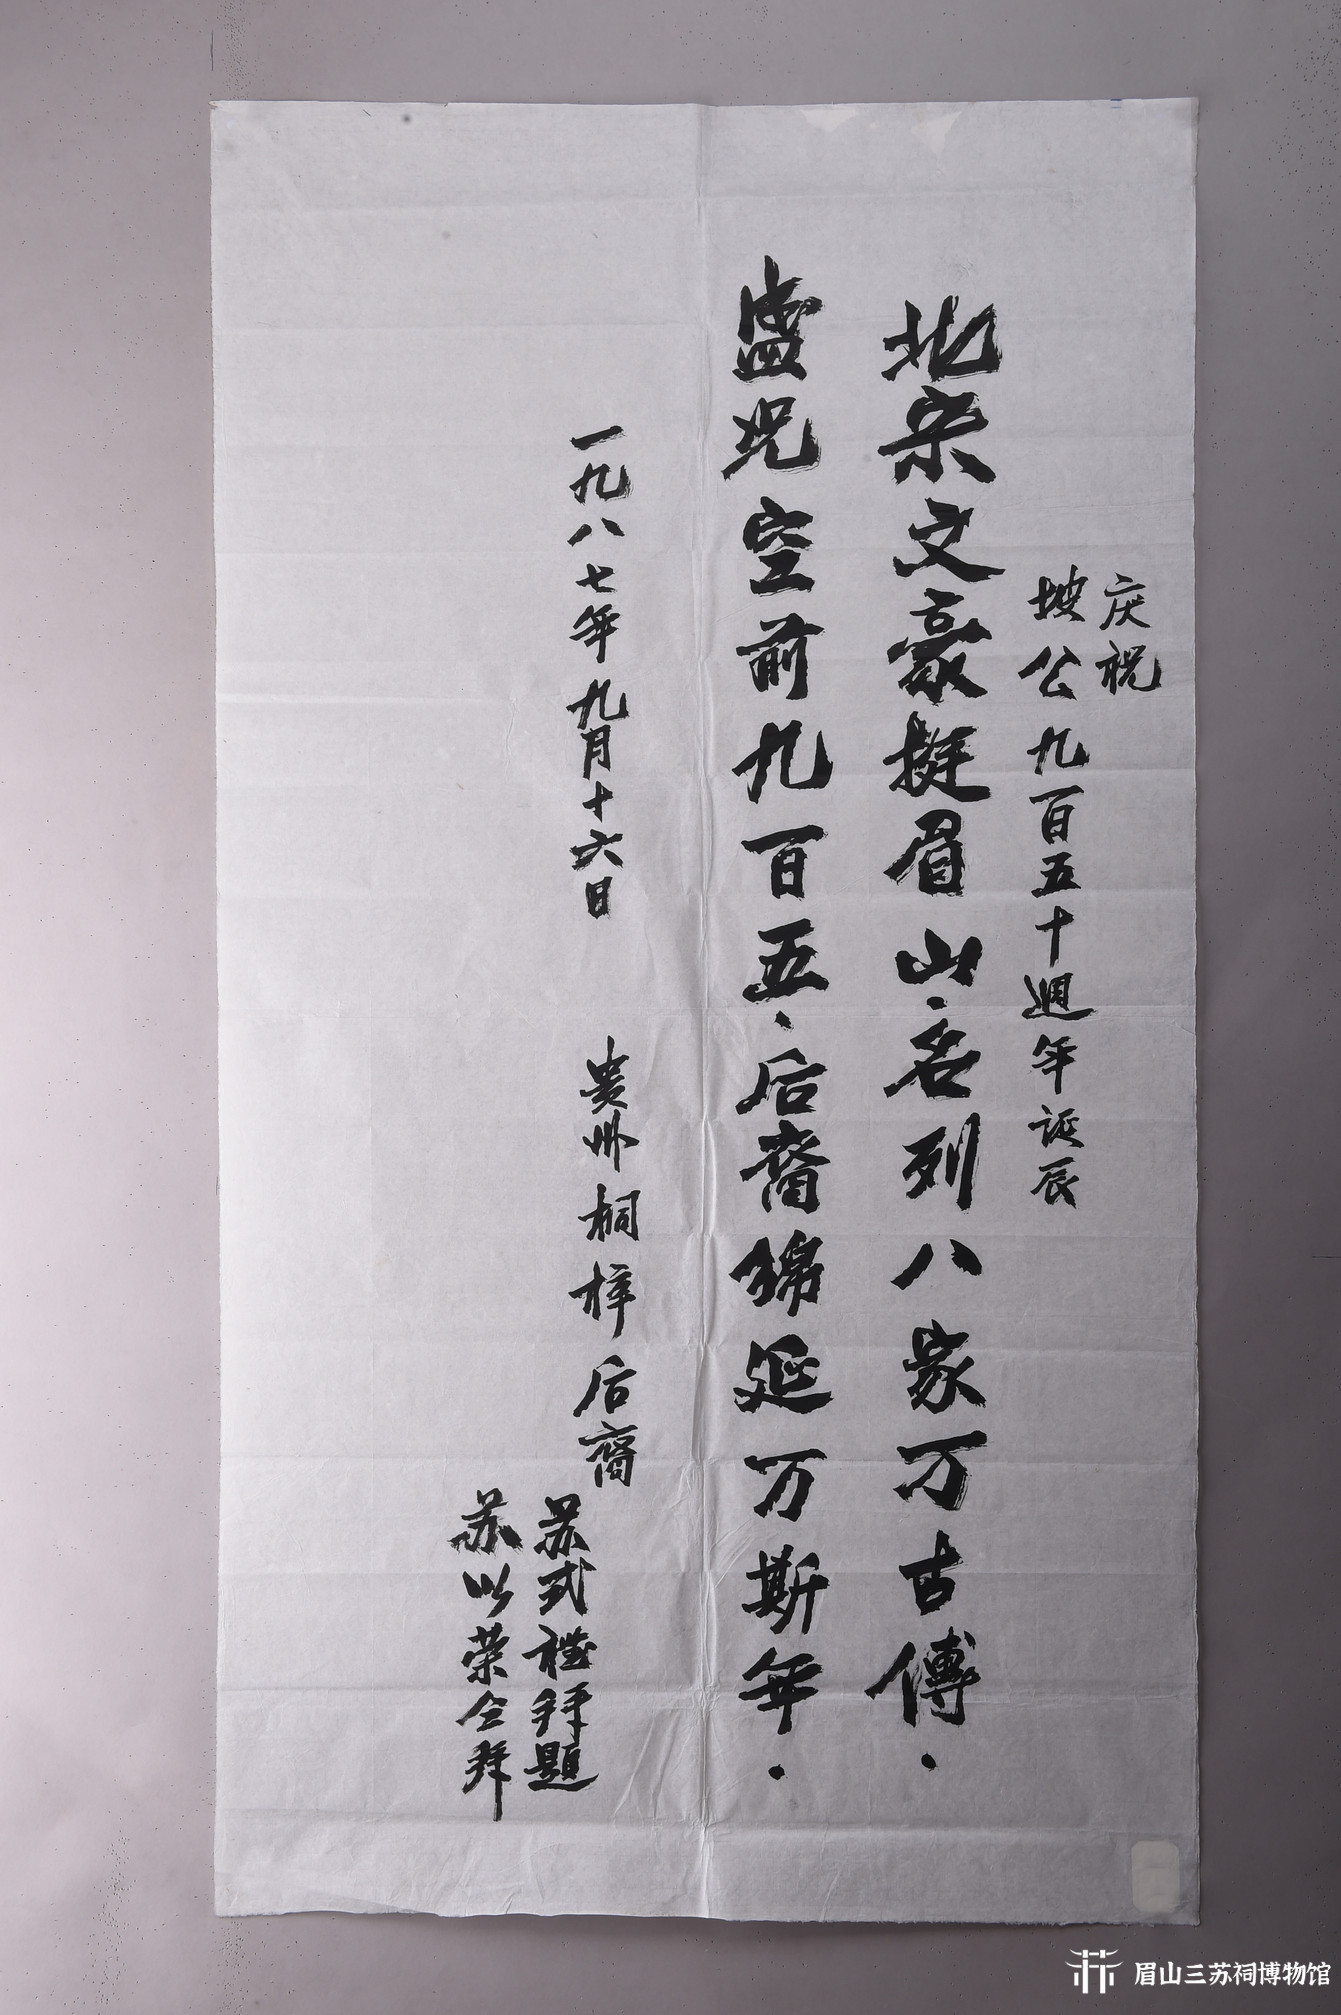 庆祝
坡公九百五十週年诞辰
北宋文豪挺眉山·名列八家万古傳·
盛况空前九百五·后裔綿延万斯年·
一九八七年九月十六日
贵州桐梓后裔
苏式 拜題
苏以荣仝拜
眉山三苏祠博物馆